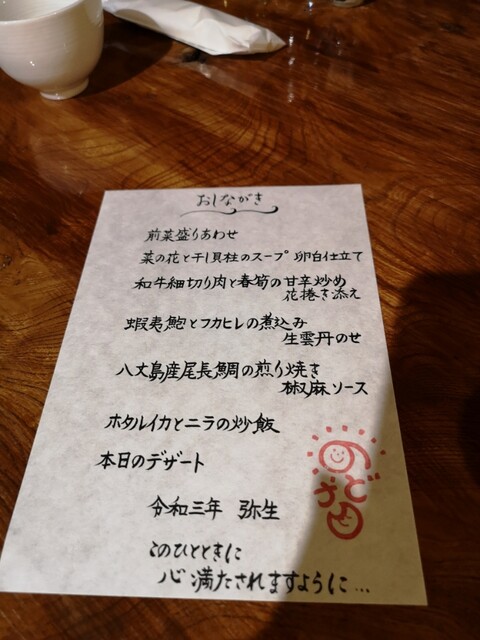 おしながき
前菜盛りあわせ
菜の花と干し貝柱のスープ 卵白仕立て
和牛細切り肉と春筍の甘辛炒め
花捲き添え
蝦夷鮑とフカヒレの煮込み
生雲丹のせ
八丈島産尾長鯛の煎り焼き
椒麻ソース
ホタルイカとニラの炒飯
本日のデザート
令和三年 弥生
このひとときに
心満たされますように…